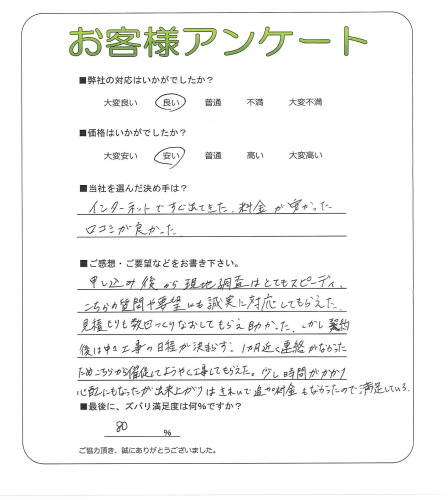 お客様アンケート
■弊社の対応はいかがでしたか?
大変良い 良い 普通 不満 大変不満
■価格はいかがでしたか?
大変安い 安い 普通 高い 大変高い
■当社を選んだ決め手は?
インターネットですぐ出てきた、料金が安かった
口コミが良かった
■ご感想・ご要望などをお書き下さい。
申し込み後から現地調査はとてもスピーディ、
こちらの質問や要望にも誠実に対応してもらえた、
見積もりも数回つくりなおしてもらえ助かった、しかし契約
後は中々工事の日程が決まらず、1カ月近く連絡がなかった
ためこちらから催促してようやく工事してもらえた。少し時間がかかり
心配にもなったが出来上がりはきれいで追加料金もなかったので満足している。
■最後に、ズバリ満足度は何%ですか?
80 %
ご協力頂き、誠にありがとうございました。